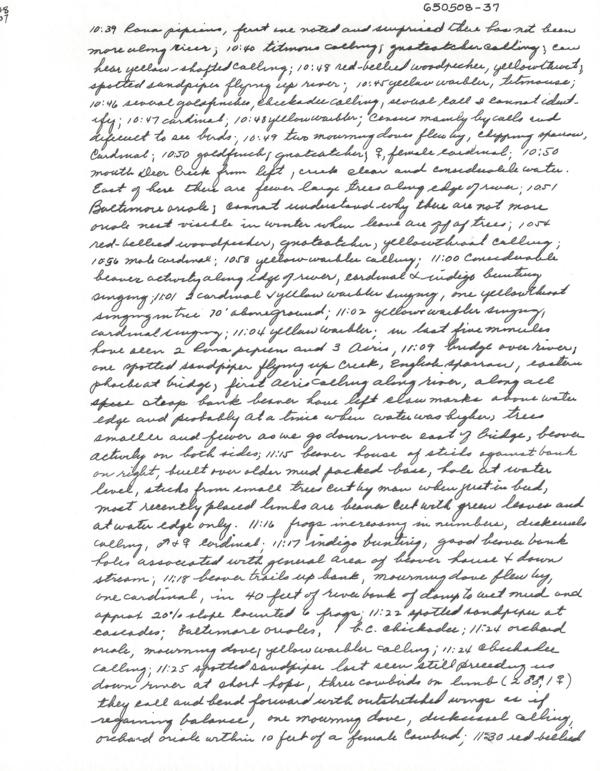 650508-37
10:39 Rana pipiens, first one noted and surprised there has not been
more along river; 10:40 titmous calling; gnatcatcher calling; can
hear yellow-shafted calling; 10:48 red-bellied woodpecker, yellowthroat,
spotted sandpiper flying up river; 10:45 yellow warbler, titmouse;
10:46 several goldfinches, chickadee calling, several call I cannot ident-
ify; 10:47 cardinal; 10:48 yellow warbler; Census mainly by calls and
difficult to see birds; 10:49 two mourning doves flew by, chipping sparrow,
Cardinal; 10:50 goldfinch, gnatcatcher, ♀, female cardinal; 10:50
mouth Deer Creek from left, creek clear and considerable water.
East of here there are fewer large trees along edge of river; 1051
Baltimore oriole; cannot understand why there are not more
oriole nest visible in winter when leave are off of trees; 1054
red-bellied woodpecker, gnatcatcher, yellowthroat calling;
1056 male cardinal; 1058 yellow warbler calling; 11:00 Considerable
beaver activity along edge of river, cardinal & indigo bunting
singing; 1101 2 cardinal & yellow warbler singing, one yellowthroat
singing in tree 70' above ground; 11:02 yellow warbler singing,
cardinal singing; 11:04 yellow warbler; in last five minutes
have seen 2 Rana pipiens and 3 Acris, 11:09 bridge over river;
one spotted sandpiper flying up Creek, English sparrow, eastern
phoebe at bridge, first acris calling along river, along all
steep bank beaver have left claw marks above water
edge and probably at a time when water was higher, trees
smaller and fewer as we go down river east of bridge, beaver
activity on both sides; 11:15 beaver house of sticks against bank
on right, built over older mud packed base, hole at water
level, sticks from small trees cut by man when just in bud,
most recently placed limbs are beaver cut with green leaves and
at water edge only. 11:16 frogs increasing in numbers, dickcissels
calling, ♂ + ♀ Cardinal; 11:17 indigo bunting, good beaver bank
holes associated with general area of beaver house & down
stream; 11:18 beaver trails up bank, mourning dove flew by,
one cardinal, in 40 feet of river bank of damp to wet mud and
approx 20% slope counted 6 frogs; 11:22 spotted sandpiper at
cascades; Baltimore orioles, 1 b.c. chickadee; 11:24 orchard
oriole, mourning dove, yellow warbler calling; 11:24 chickadee
calling; 11:25 spotted sandpiper last seen still preceding us
down river at short hops, three cowbirds on limb (2♂♂, 1♀)
they call and bend forward with outstretched wings as if
regaining balance, one mourning dove, dickcissel calling,
orchard oriole within 10 feet of a female Cowbird; 11:30 red-bellied